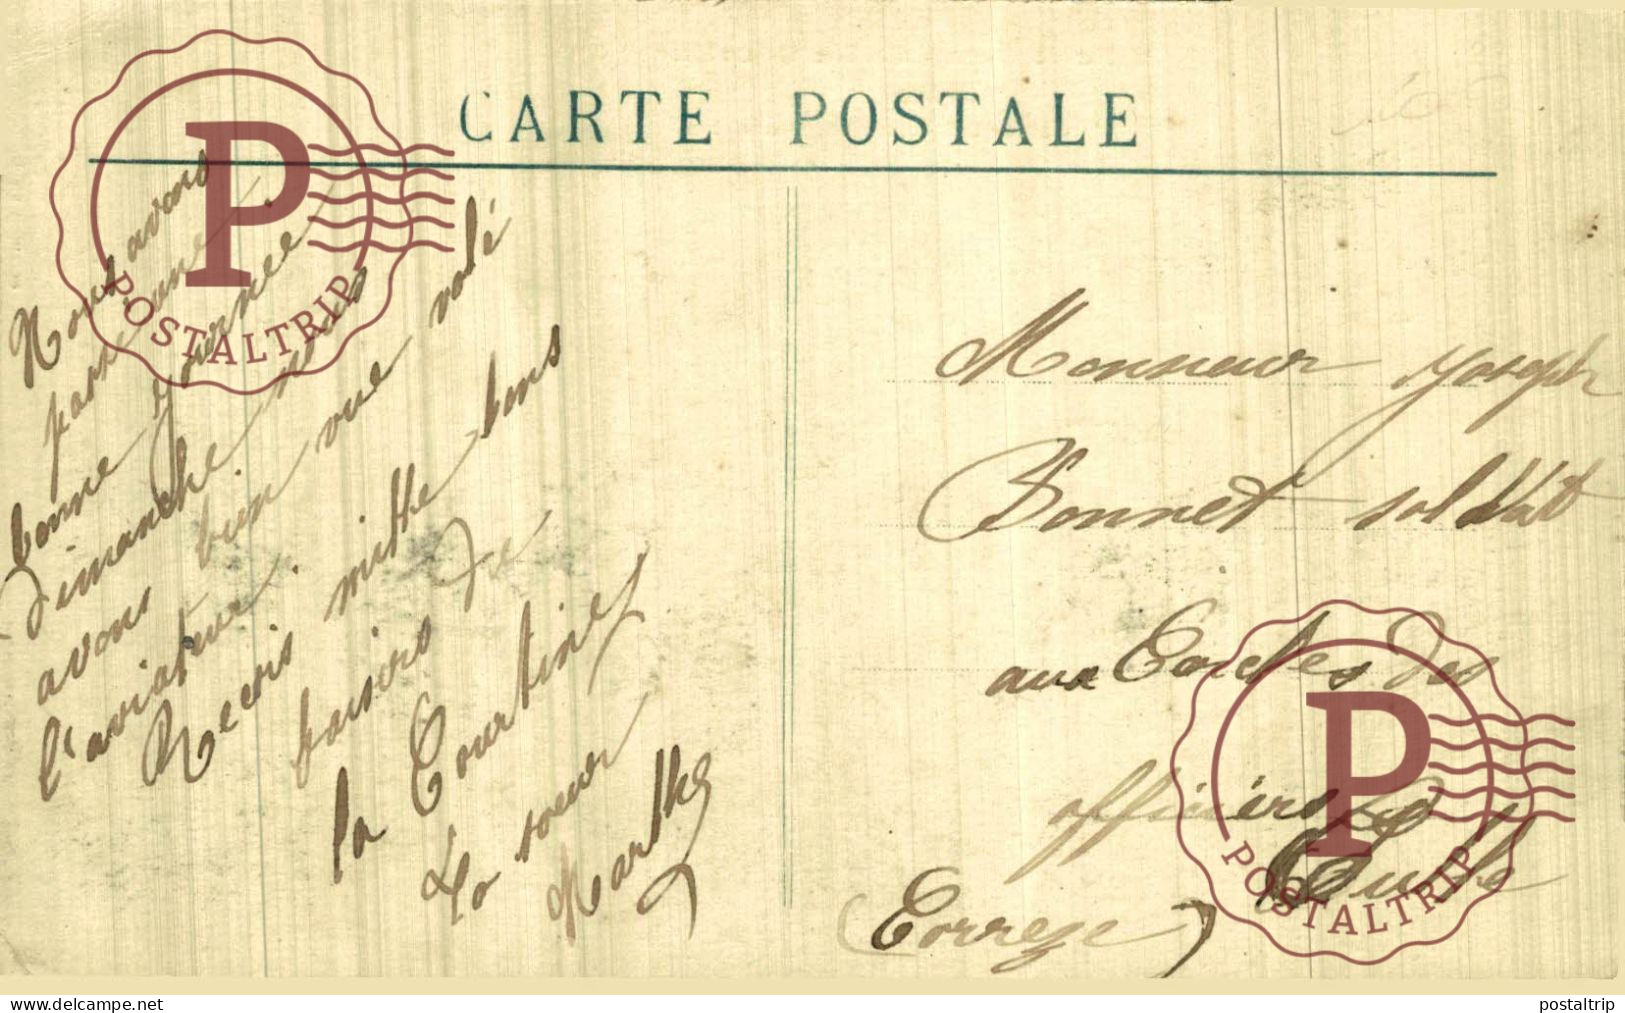 CARTE POSTALE
Nous avons
passé une
bonne journée
dimanche nous
avons bien vue volé
l'aviateur.
Recois mille bons
baisiers de
la Courtine
Ta soeur
Marthe
Monsieur Joseph
Bonnet soldat
aux Cercles des
officiers
Tulle
(Correze)
POSTALTRIP
POSTALTRIP
www.delcampe.net
postaltrip